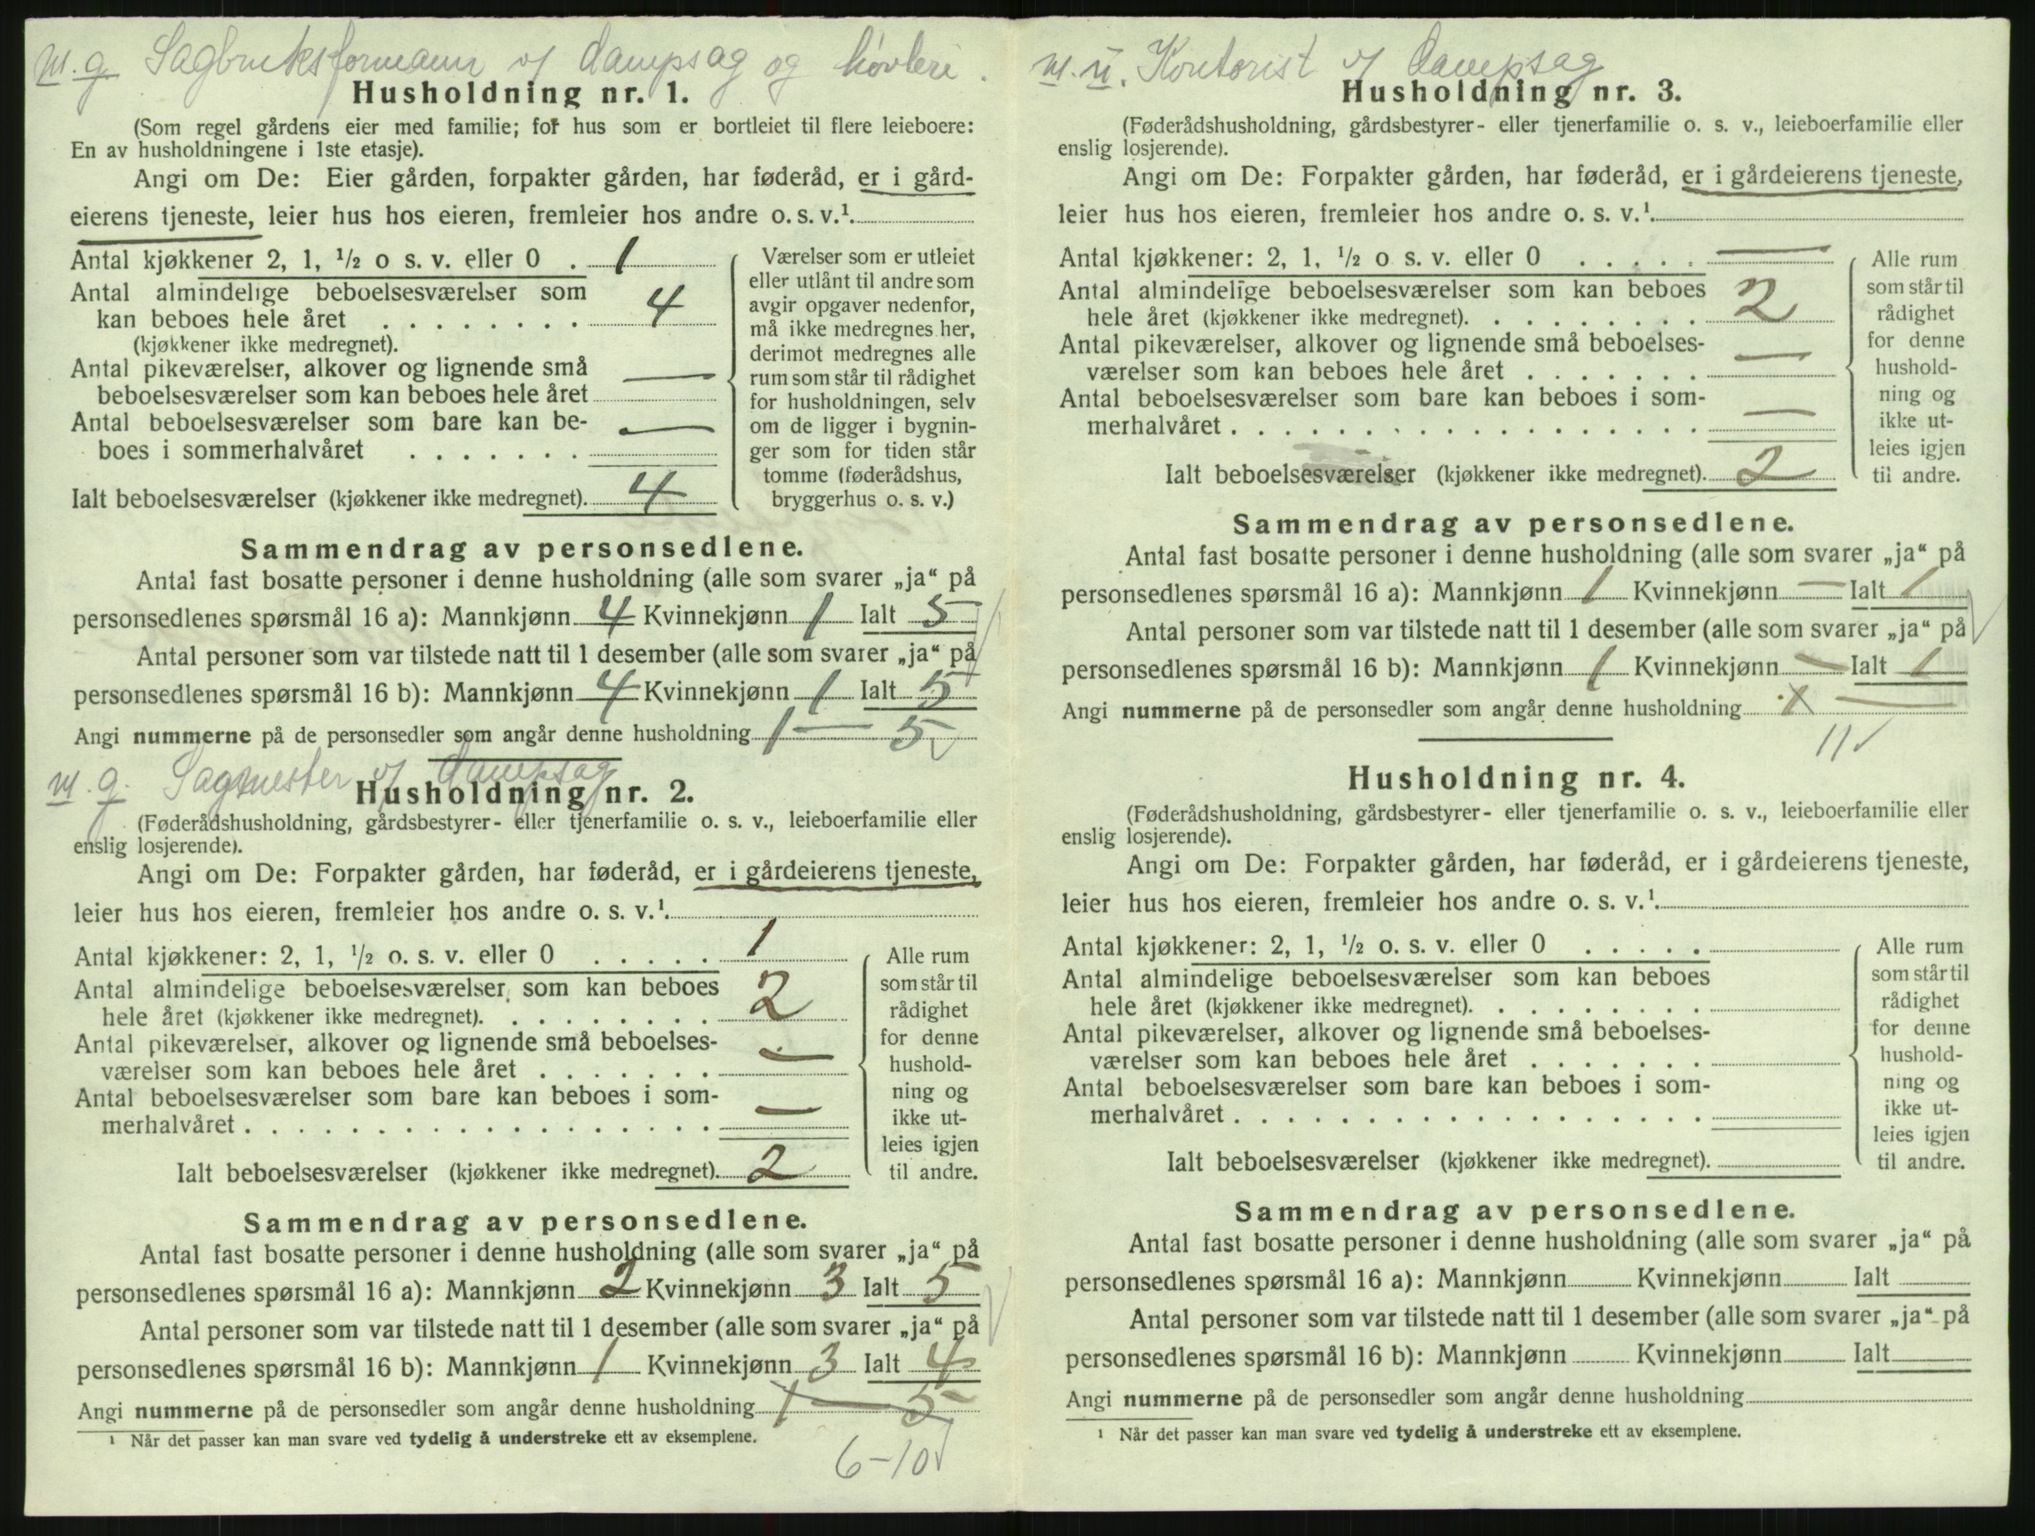 m.g. Sagbruksformann v/ dampsag og høvleri.
Husholdning nr. 1.
(Som regel gårdens eier med familie; for hus som er bortleiet til flere leieboere:
En av husholdningene i 1ste etasje).
Angi om De: Eier gården, forpakter gården, har føderåd, er i gård-
eierens tjeneste, leier hus hos eieren, fremleier hos andre o. s. v.¹.
Antal kjøkkener 2, 1, ½ o s. v. eller 0 . 1
Antal almindelige beboelsesværelser som
kan beboes hele året . . . . . . . . 4
(kjøkkener ikke medregnet).
Antal pikeværelser, alkover og lignende små
beboelsesværelser som kan beboes hele året —
Antal beboelsesværelser som bare kan be-
boes i sommerhalvåret . . . . . . . —
Ialt beboelsesværelser (kjøkkener ikke medregnet). 4
Værelser som er utleiet
eller utlånt til andre som
avgir opgaver nedenfor,
må ikke medregnes her,
derimot medregnes alle
rum som står til rådighet
for husholdningen, selv
om de ligger i bygnin-
ger som for tiden står
tomme (føderådshus,
bryggerhus o. s. v.)
Sammendrag av personsedlene.
Antal fast bosatte personer i denne husholdning (alle som svarer „ja“ på
personsedlenes spørsmål 16 a): Mannkjønn 4 Kvinnekjønn 1 Ialt 5
Antal personer som var tilstede natt til 1 desember (alle som svarer „ja“ på
personsedlenes spørsmål 16 b): Mannkjønn 4 Kvinnekjønn 1 Ialt 5
Angi nummerne på de personsedler som angår denne husholdning 1 — 5
m.g. Sagmester v/ dampsag
Husholdning nr. 2.
(Føderådshusholdning, gårdsbestyrer- eller tjenerfamilie o. s. v., leieboerfamilie eller
enslig losjerende).
Angi om De: Forpakter gården, har føderåd, er i gårdeierens tjeneste,
leier hus hos eieren, fremleier hos andre o. s. v.¹.
Antal kjøkkener: 2, 1, ½ o. s. v. eller 0 . . . . . 1
Antal almindelige beboelsesværelser som kan beboes
hele året (kjøkkener ikke medregnet). . . . . . . . . 2
Antal pikeværelser, alkover og lignende små beboelses-
værelser som kan beboes hele året . . . . . . . —
Antal beboelsesværelser som bare kan beboes i som-
merhalvåret . . . . . . . . . . . . . . . . . . —
Ialt beboelsesværelser (kjøkkener ikke medregnet). 2
Alle rum
som står til
rådighet
for denne
hushold-
ning og
ikke ut-
leies igjen
til andre.
Sammendrag av personsedlene.
Antal fast bosatte personer i denne husholdning (alle som svarer „ja“ på
personsedlenes spørsmål 16 a): Mannkjønn 2 Kvinnekjønn 3 Ialt 5
Antal personer som var tilstede natt til 1 desember (alle som svarer „ja“ på
personsedlenes spørsmål 16 b): Mannkjønn 1 Kvinnekjønn 3 Ialt 4
Angi nummerne på de personsedler som angår denne husholdning 1 — 5
¹ Når det passer kan man svare ved tydelig å understreke ett av eksemplene.
6-10
m.u. Kontorist v/ dampsag
Husholdning nr. 3.
(Føderådshusholdning, gårdsbestyrer- eller tjenerfamilie o. s. v., leieboerfamilie eller
enslig losjerende).
Angi om De: Forpakter gården, har føderåd, er i gårdeierens tjeneste,
leier hus hos eieren, fremleier hos andre o. s. v.¹.
Antal kjøkkener: 2, 1, ½ o s. v. eller 0 . . . . . —
Antal almindelige beboelsesværelser som kan beboes
hele året (kjøkkener ikke medregnet). . . . . . . . . 2
Antal pikeværelser, alkover og lignende små beboelses-
værelser som kan beboes hele året . . . . . . . —
Antal beboelsesværelser som bare kan beboes i som-
merhalvåret . . . . . . . . . . . . . . . . . . —
Ialt beboelsesværelser (kjøkkener ikke medregnet). 2
Alle rum
som står til
rådighet
for denne
hushold-
ning og
ikke ut-
leies igjen
til andre.
Sammendrag av personsedlene.
Antal fast bosatte personer i denne husholdning (alle som svarer „ja“ på
personsedlenes spørsmål 16 a): Mannkjønn 1 Kvinnekjønn — Ialt 1
Antal personer som var tilstede natt til 1 desember (alle som svarer „ja“ på
personsedlenes spørsmål 16 b): Mannkjønn 1 Kvinnekjønn — Ialt 1
Angi nummerne på de personsedler som angår denne husholdning —
11
Husholdning nr. 4.
(Føderådshusholdning, gårdsbestyrer- eller tjenerfamilie o. s. v., leieboerfamilie eller
enslig losjerende).
Angi om De: Forpakter gården, har føderåd, er i gårdeierens tjeneste,
leier hus hos eieren, fremleier hos andre o. s. v.¹.
Antal kjøkkener: 2, 1, ½ o. s. v. eller 0 . . . . .
Antal almindelige beboelsesværelser som kan beboes
hele året (kjøkkener ikke medregnet). . . . . . . . .
Antal pikeværelser, alkover og lignende små beboelses-
værelser som kan beboes hele året . . . . . . .
Antal beboelsesværelser som bare kan beboes i som-
merhalvåret . . . . . . . . . . . . . . . . . .
Ialt beboelsesværelser (kjøkkener ikke medregnet).
Alle rum
som står til
rådighet
for denne
hushold-
ning og
ikke ut-
leies igjen
til andre.
Sammendrag av personsedlene.
Antal fast bosatte personer i denne husholdning (alle som svarer „ja“ på
personsedlenes spørsmål 16 a): Mannkjønn Kvinnekjønn Ialt
Antal personer som var tilstede natt til 1 desember (alle som svarer „ja“ på
personsedlenes spørsmål 16 b): Mannkjønn Kvinnekjønn Ialt
Angi nummerne på de personsedler som angår denne husholdning
¹ Når det passer kan man svare ved tydelig å understreke ett av eksemplene.